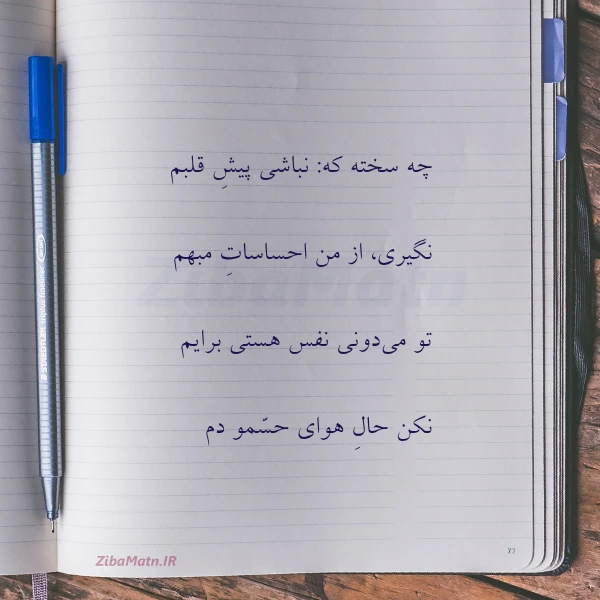 چه سخته که: نباشی پیشِ قلبم
نگیری، از من احساساتِ مبهم
تو می‌دونی نفس هستی برایم
نکن حالِ هوای حسّمو دم
ZibaMatn
ZibaMatn.IR
77